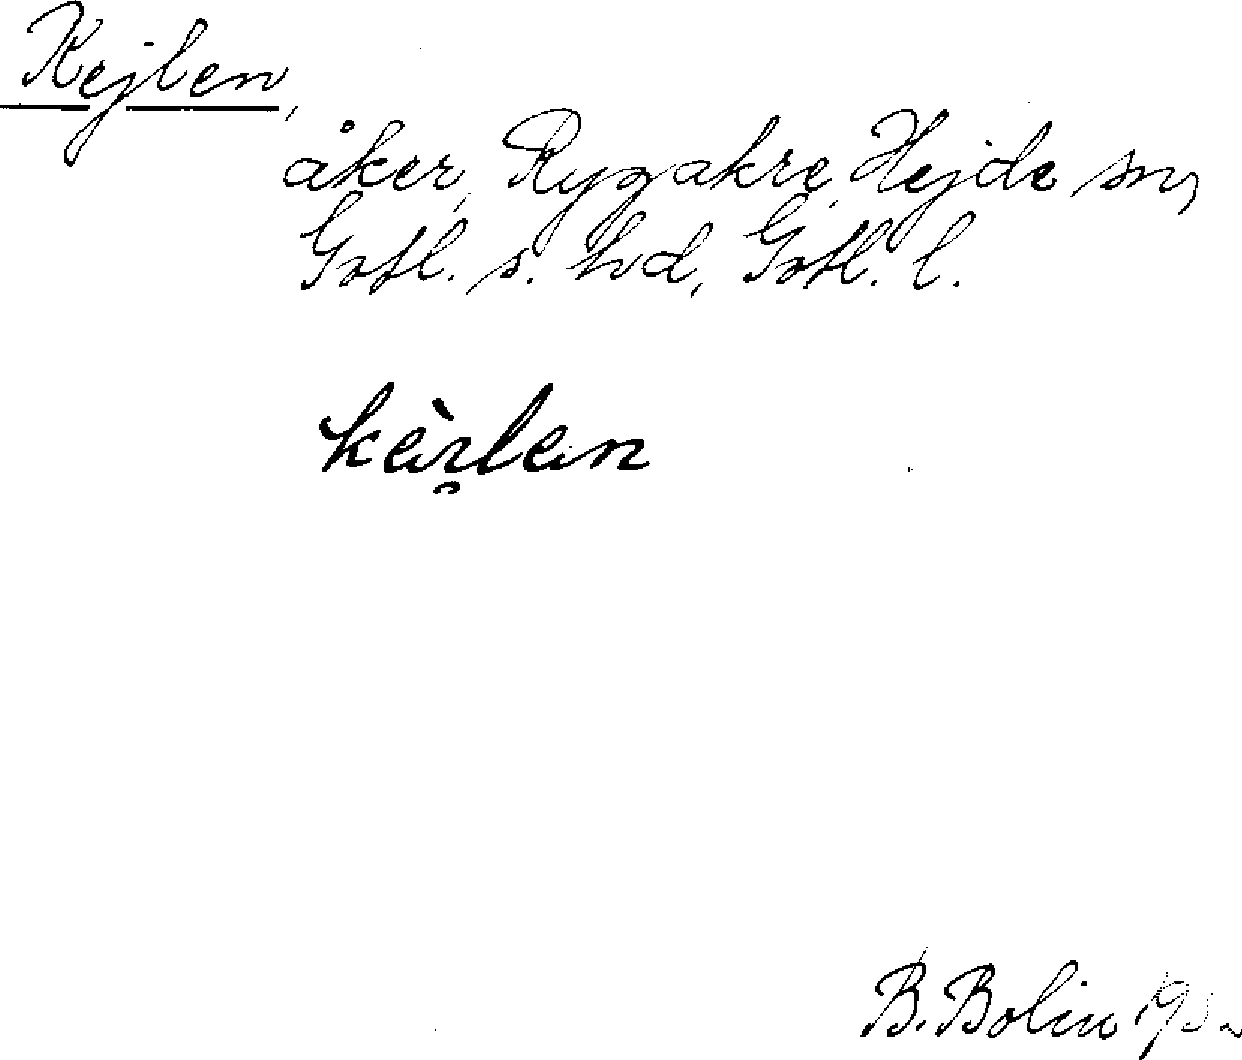 Kejlen,
åker, Rygakre, Hejde sn,
Gotl. s. hd, Gotl. l.
B. Bolin